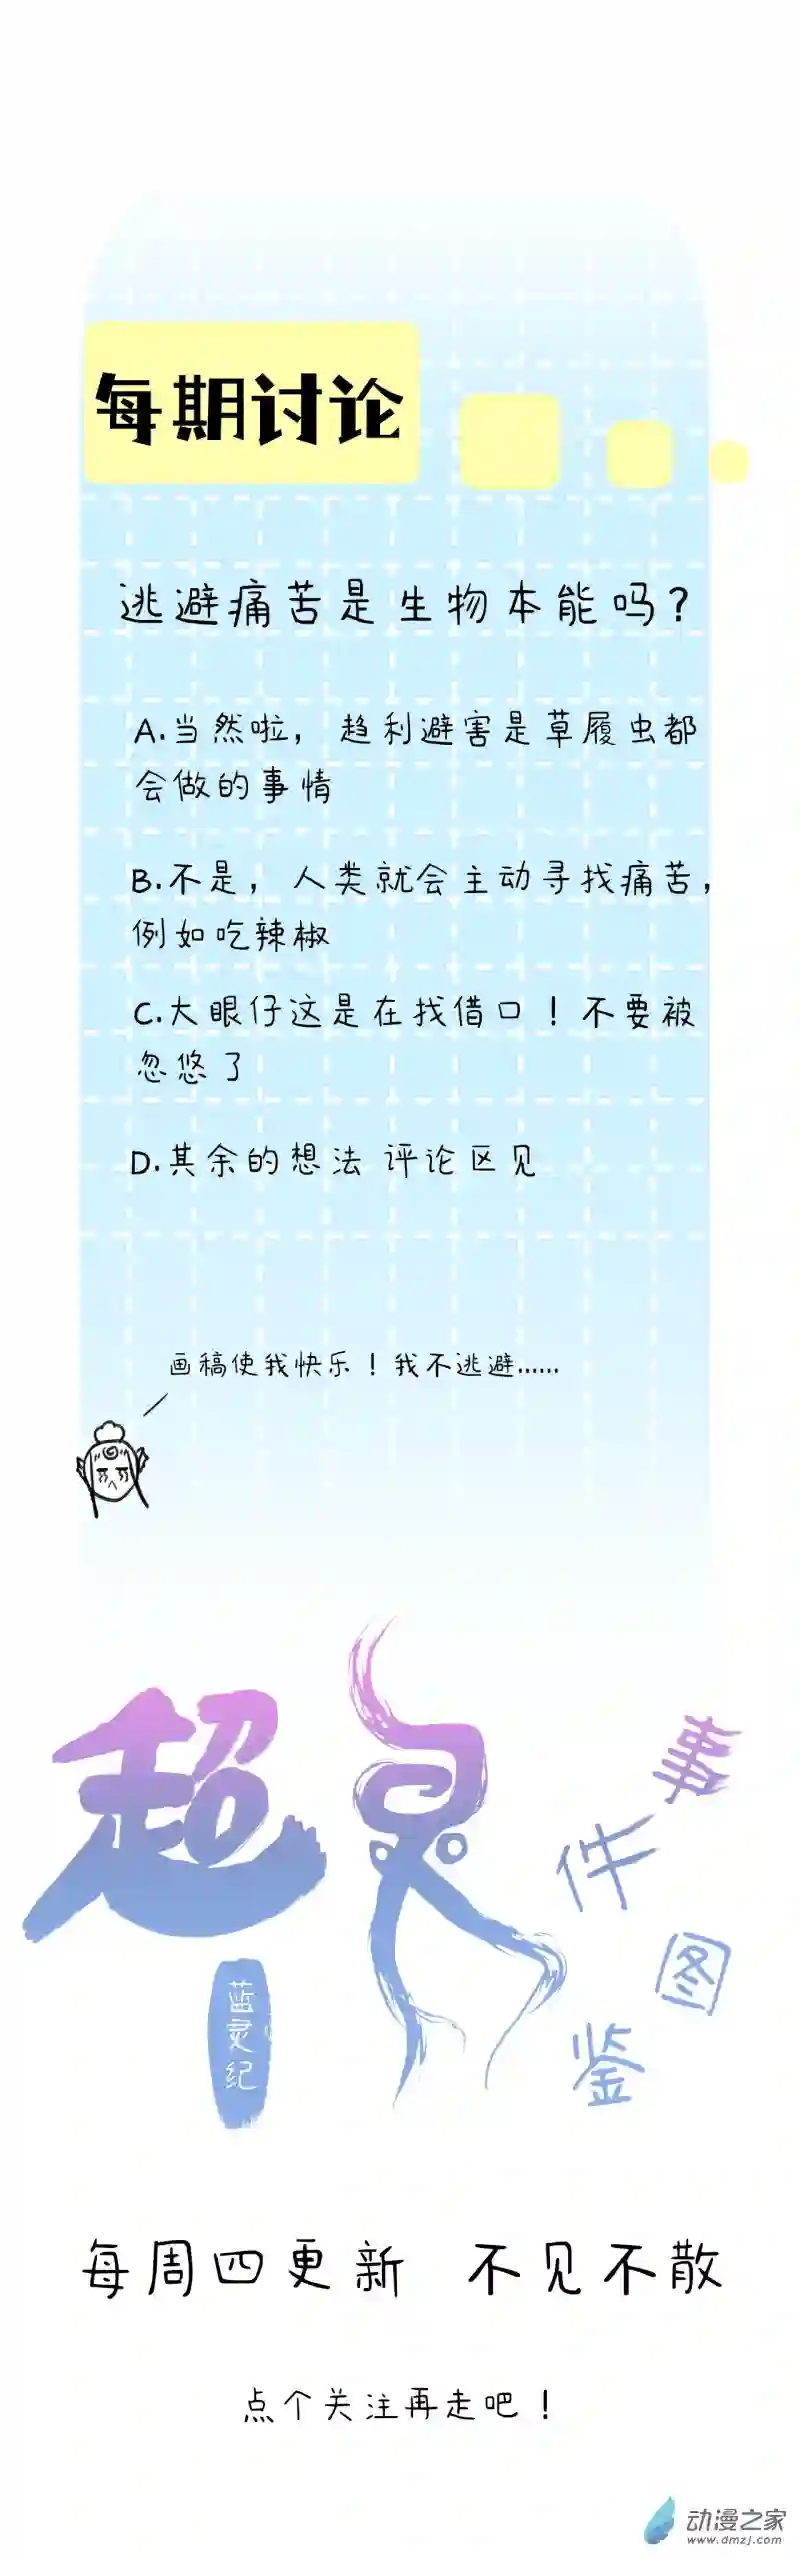 每期讨论
逃避痛苦是生物本能吗?
A.当然啦，趋利避害是草履虫都
会做的事情
B.不是，人类就会主动寻找痛苦，
例如吃辣椒
C.大眼仔这是在找借口！不要被
忽悠了
D.其余的想法 评论区见
画稿使我快乐！我不逃避......
超灵
事件图鉴
蓝灵纪
每周四更新 不见不散
点个关注再走吧！
动漫之家
www.dmzj.com